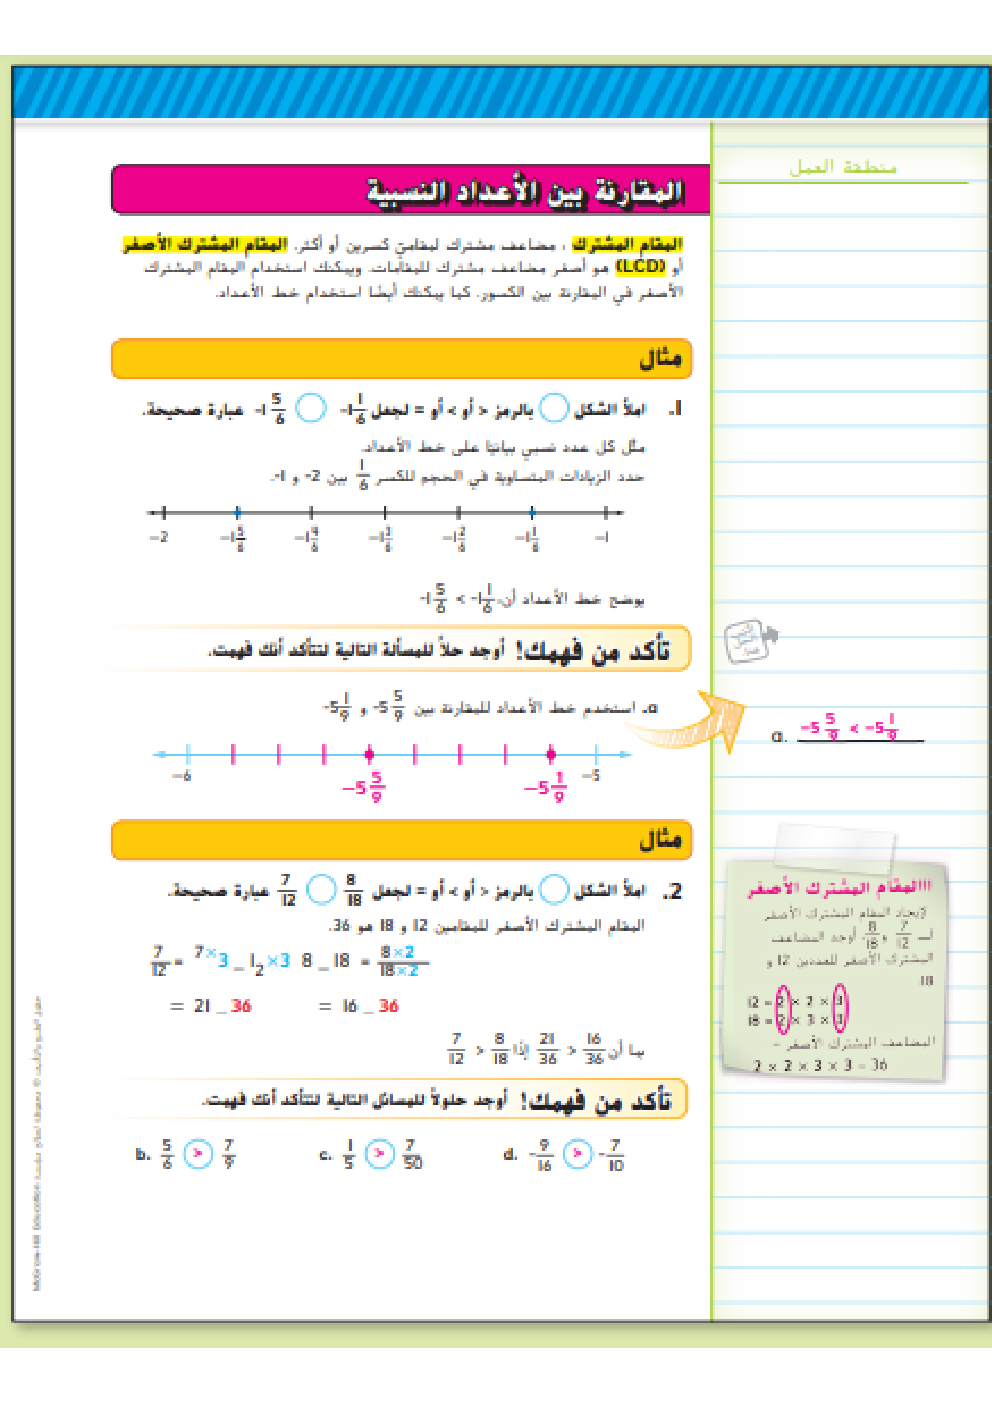 منطقة العمل
المقارنة بين الأعداد النسبية
المقام المشترك ، مضاعف مشترك لمقامي كسرين أو أكثر. المقام المشترك الأصغر
أو (LCD) هو أصغر مضاعف مشترك للمقامات. ويمكنك استخدام المقام المشترك
الأصغر في المقارنة بين الكسور. كما يمكنك أيضًا استخدام خط الأعداد.
مثال
1. املأ الشكل ◯ بالرمز < أو > أو = لجعل -1 1/6 ◯ -1 5/6 عبارة صحيحة.
مثّل كل عدد نسبي بيانيًا على خط الأعداد.
حدد الزيادات المتساوية في الحجم للكسر 1/6 بين 2- و 1-.
−2 −1 5/6 −1 4/6 −1 3/6 −1 2/6 −1 1/6 −1
يوضح خط الأعداد أن -1 5/6 < -1 1/6.
تأكد من فهمك! أوجد حلاً للمسألة التالية لتتأكد أنك فهمت.
a. استخدم خط الأعداد للمقارنة بين -5 5/9 و -5 1/9
−6 −5 5/9 −5 1/9 −5
a. −5 5/9 < −5 1/9
مثال
2. املأ الشكل ◯ بالرمز < أو > أو = لجعل 8/18 ◯ 7/12 عبارة صحيحة.
المقام المشترك الأصغر للمقامين 12 و 18 هو 36.
7/12 = 7×3 _ 12×3 8 _ 18 = 8×2/18×2
= 21 _ 36 = 16 _ 36
بما أن 21/36 > 16/36 إذًا 7/12 > 8/18
تأكد من فهمك! أوجد حلولاً للمسائل التالية لتتأكد أنك فهمت.
b. 5/6 > 7/9 c. 1/5 > 7/50 d. -9/16 > -7/10
المقام المشترك الأصغر
لإيجاد المقام المشترك الأصغر
لـ 7/12 و 8/18، أوجد المضاعف
المشترك الأصغر للعددين 12 و
18.
12 = 2 × 2 × 3
18 = 2 × 3 × 3
المضاعف المشترك الأصغر =
2 × 2 × 3 × 3 = 36
McGraw-Hill Education